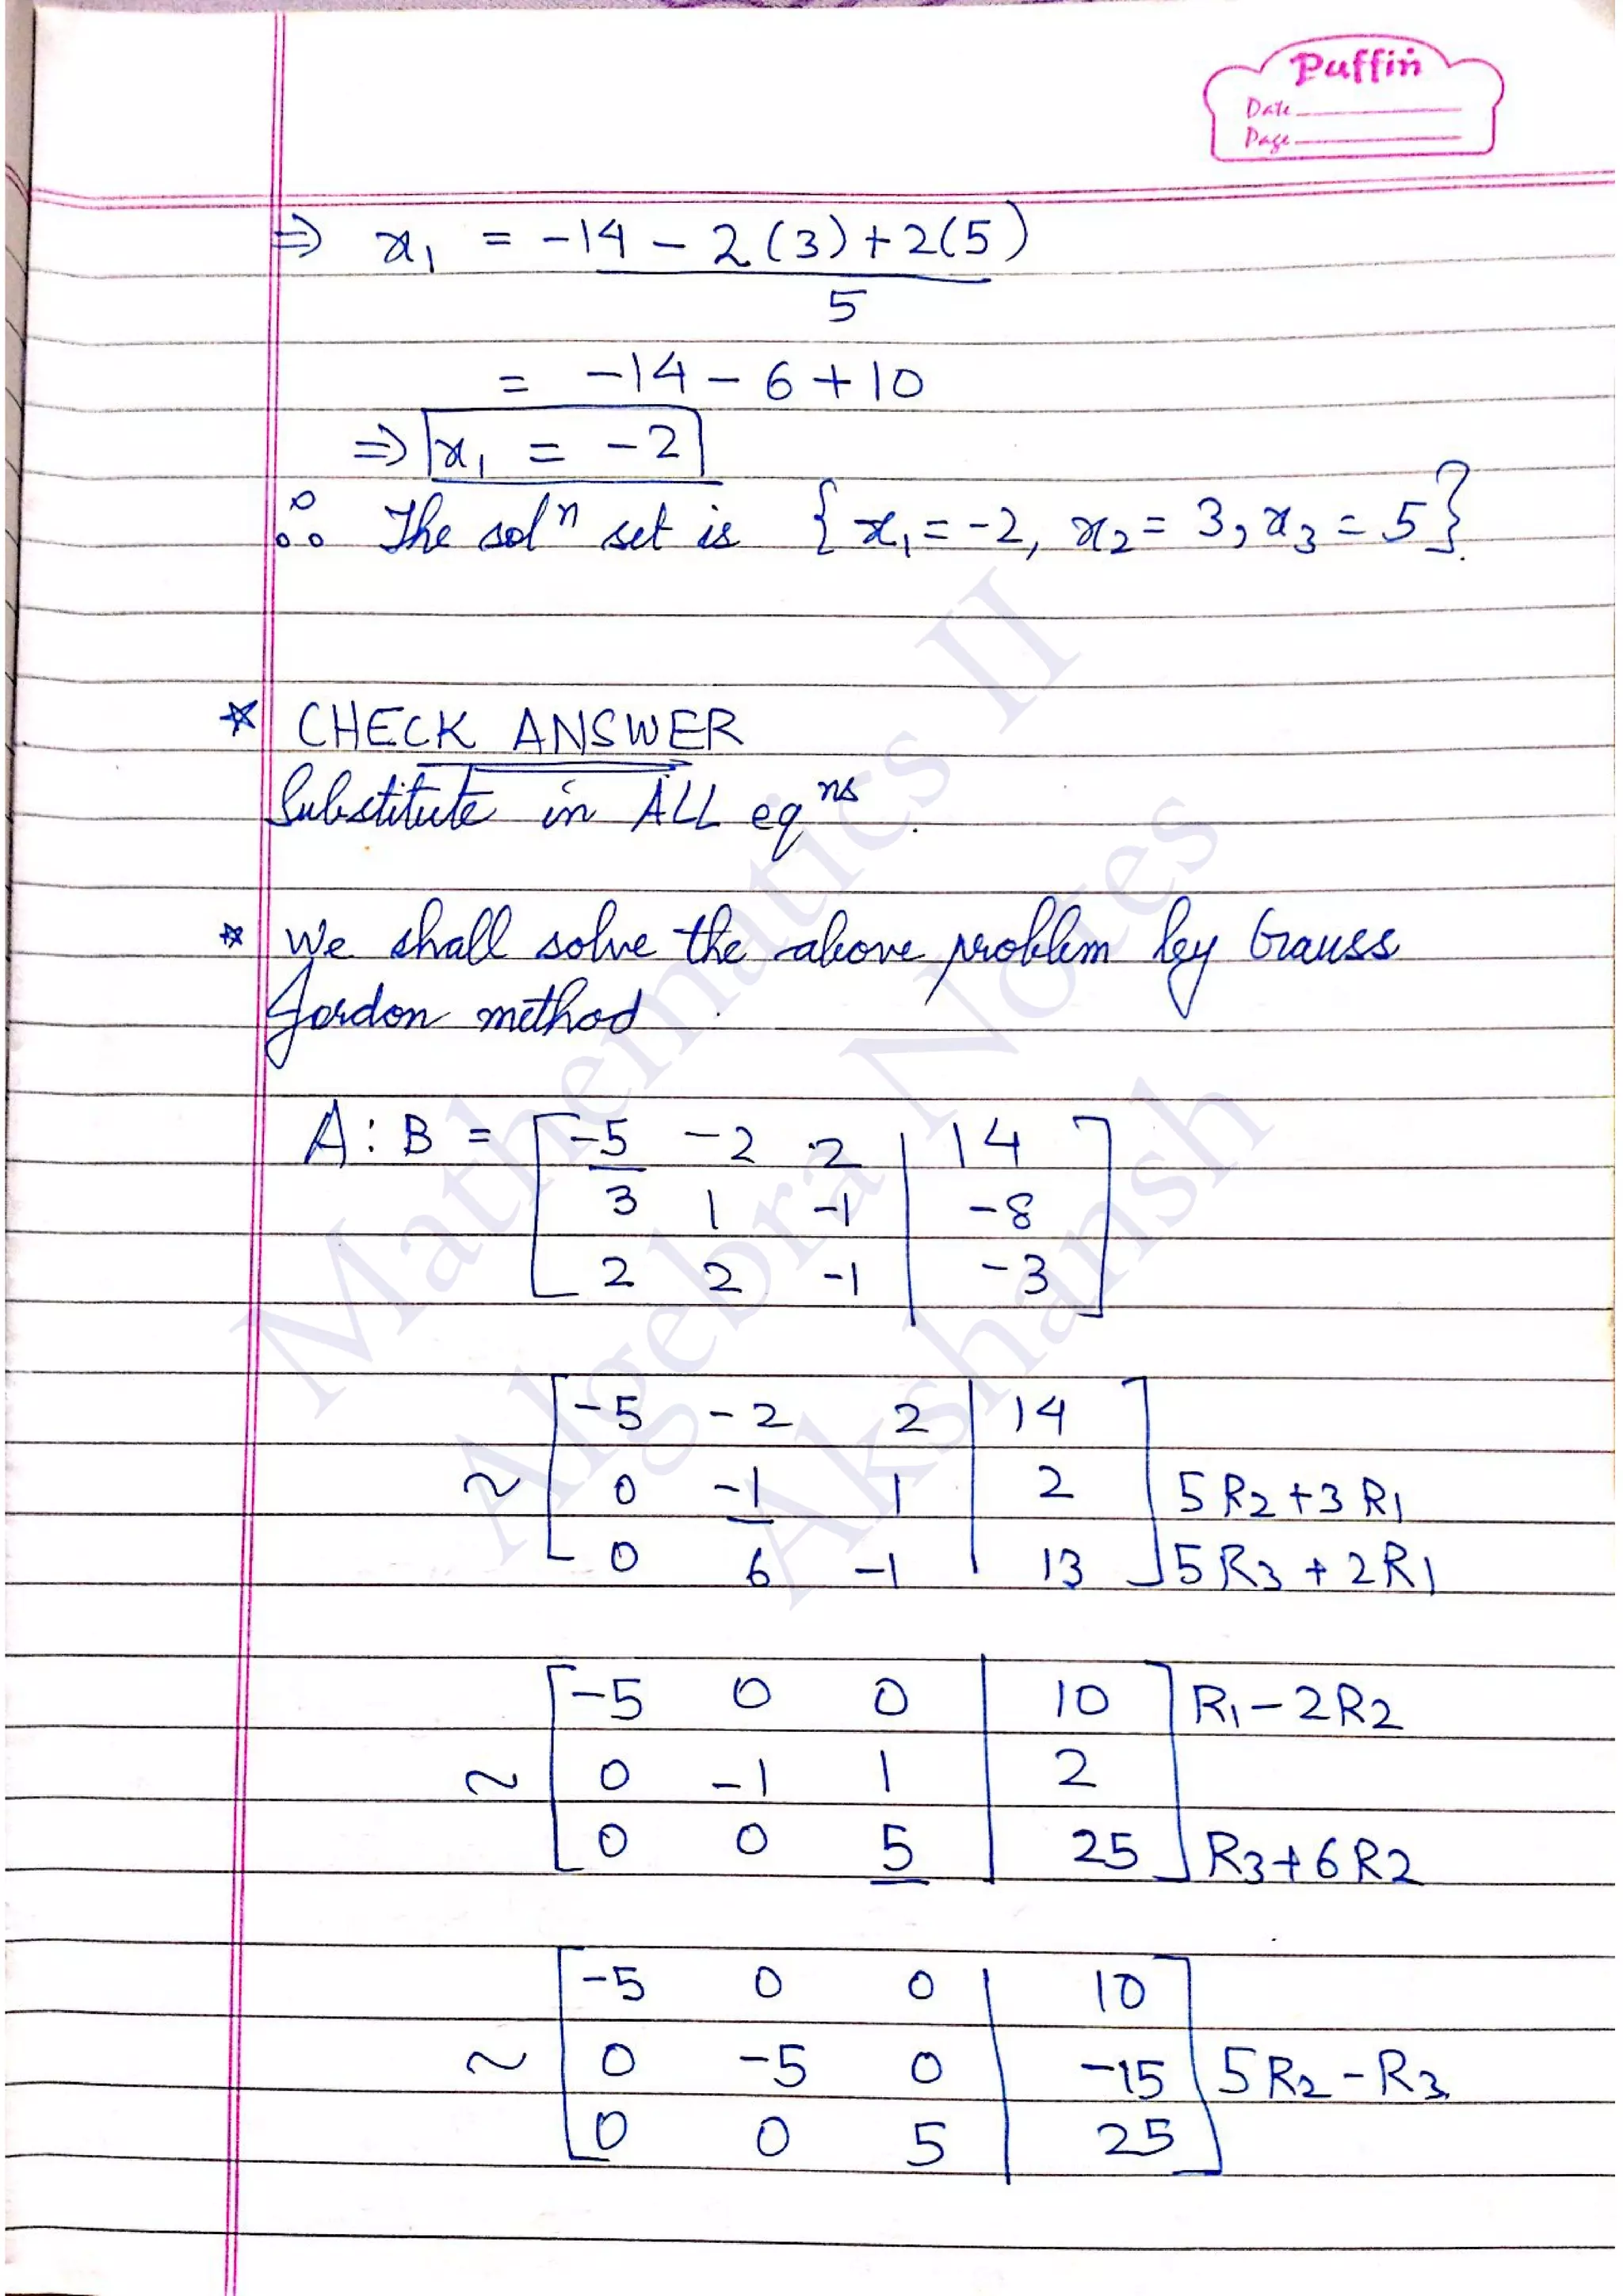 Puffin
Date
Page
⇒ x₁ = -14 - 2(3) + 2(5)
5
= -14 - 6 + 10
⇒ x₁ = -2
∴ The solⁿ set is { x₁ = -2, x₂ = 3, x₃ = 5 }.
* CHECK ANSWER
Substitute in ALL eqⁿˢ.
* We shall solve the above problem by Gauss
Jordon method.
A : B = [ -5 -2 2 | 14 ]
3 1 -1 | -8
2 2 -1 | -3
[ -5 -2 2 | 14 ]
~ 0 -1 1 | 2 5R₂ + 3R₁
0 6 -1 | 13 5R₃ + 2R₁
[ -5 0 0 | 10 ] R₁ - 2R₂
~ 0 -1 1 | 2
0 0 5 | 25 R₃ + 6R₂
[ -5 0 0 | 10 ]
~ 0 -5 0 | -15 5R₂ - R₃
0 0 5 | 25
Mathematics II
Algebra Notes
Akshansh